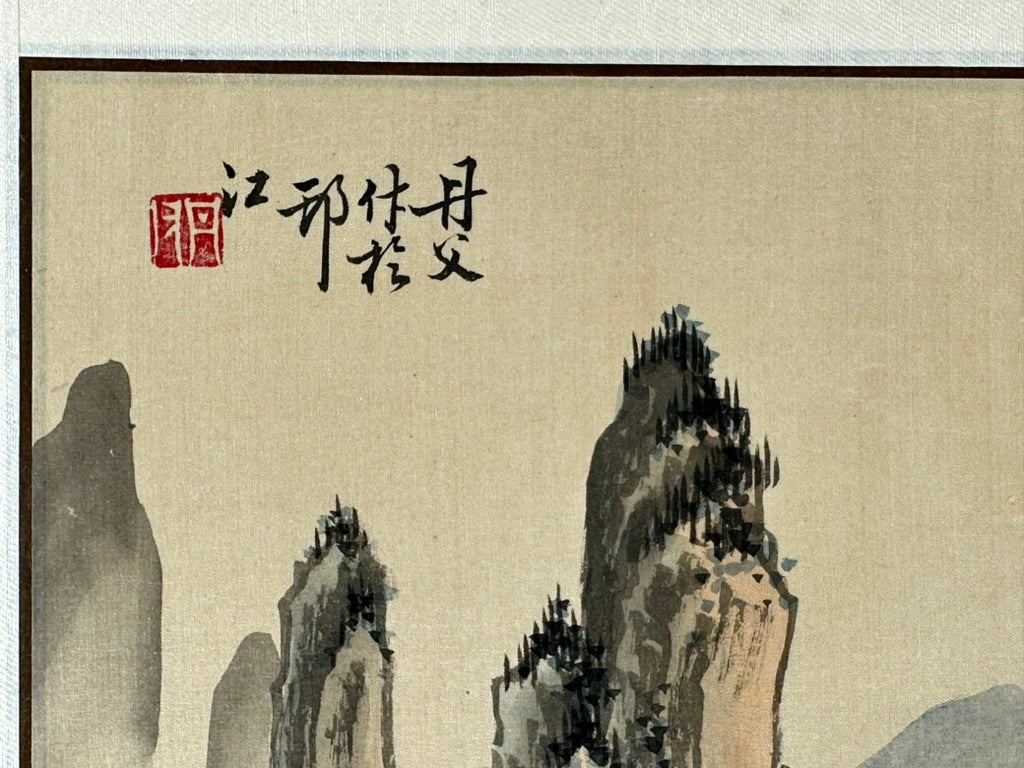 丹父
作於
邗
江